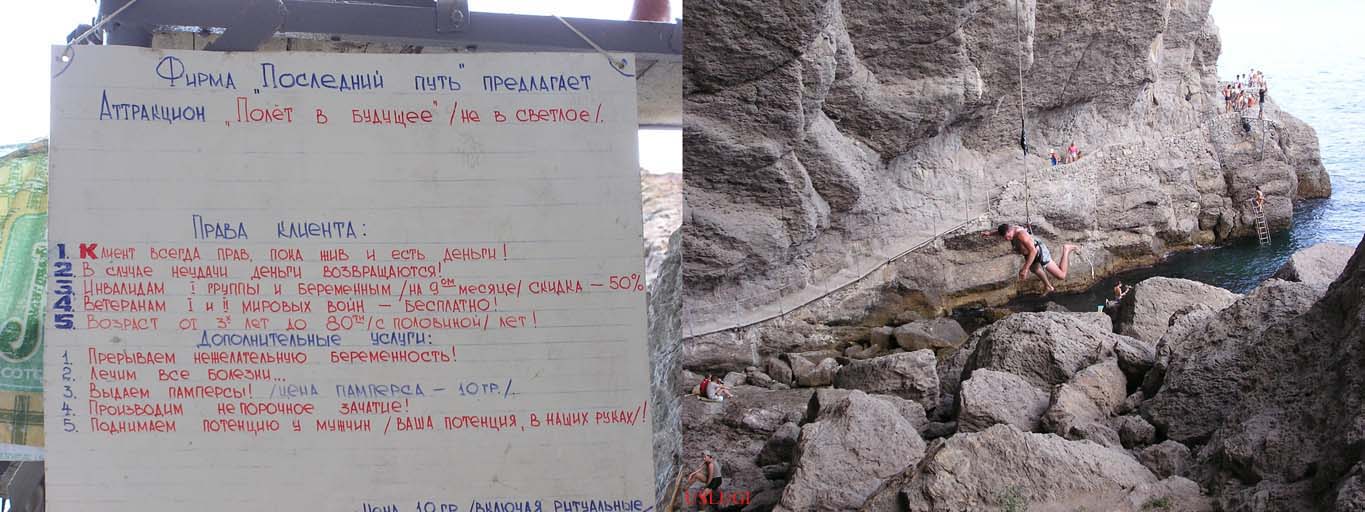 Фирма "Последний путь" предлагает
Аттракцион "Полёт в будущее" /не в светлое/.
Права клиента:
1. Клиент всегда прав, пока жив и есть деньги!
2. В случае неудачи деньги возвращаются!
3. Инвалидам I группы и беременным /на 9ом месяце/ скидка – 50%
4. Ветеранам I и II мировых войн – бесплатно!
5. Возраст от 3х лет до 80ти /с половиной/ лет!
Дополнительные услуги:
1. Прерываем нежелательную беременность!
2. Лечим все болезни...
3. Выдаем памперсы! /цена памперса – 10 гр./.
4. Производим непорочное зачатие!
5. Поднимаем потенцию у мужчин /ваша потенция, в наших руках/!
Цена 10 гр /включая ритуальные